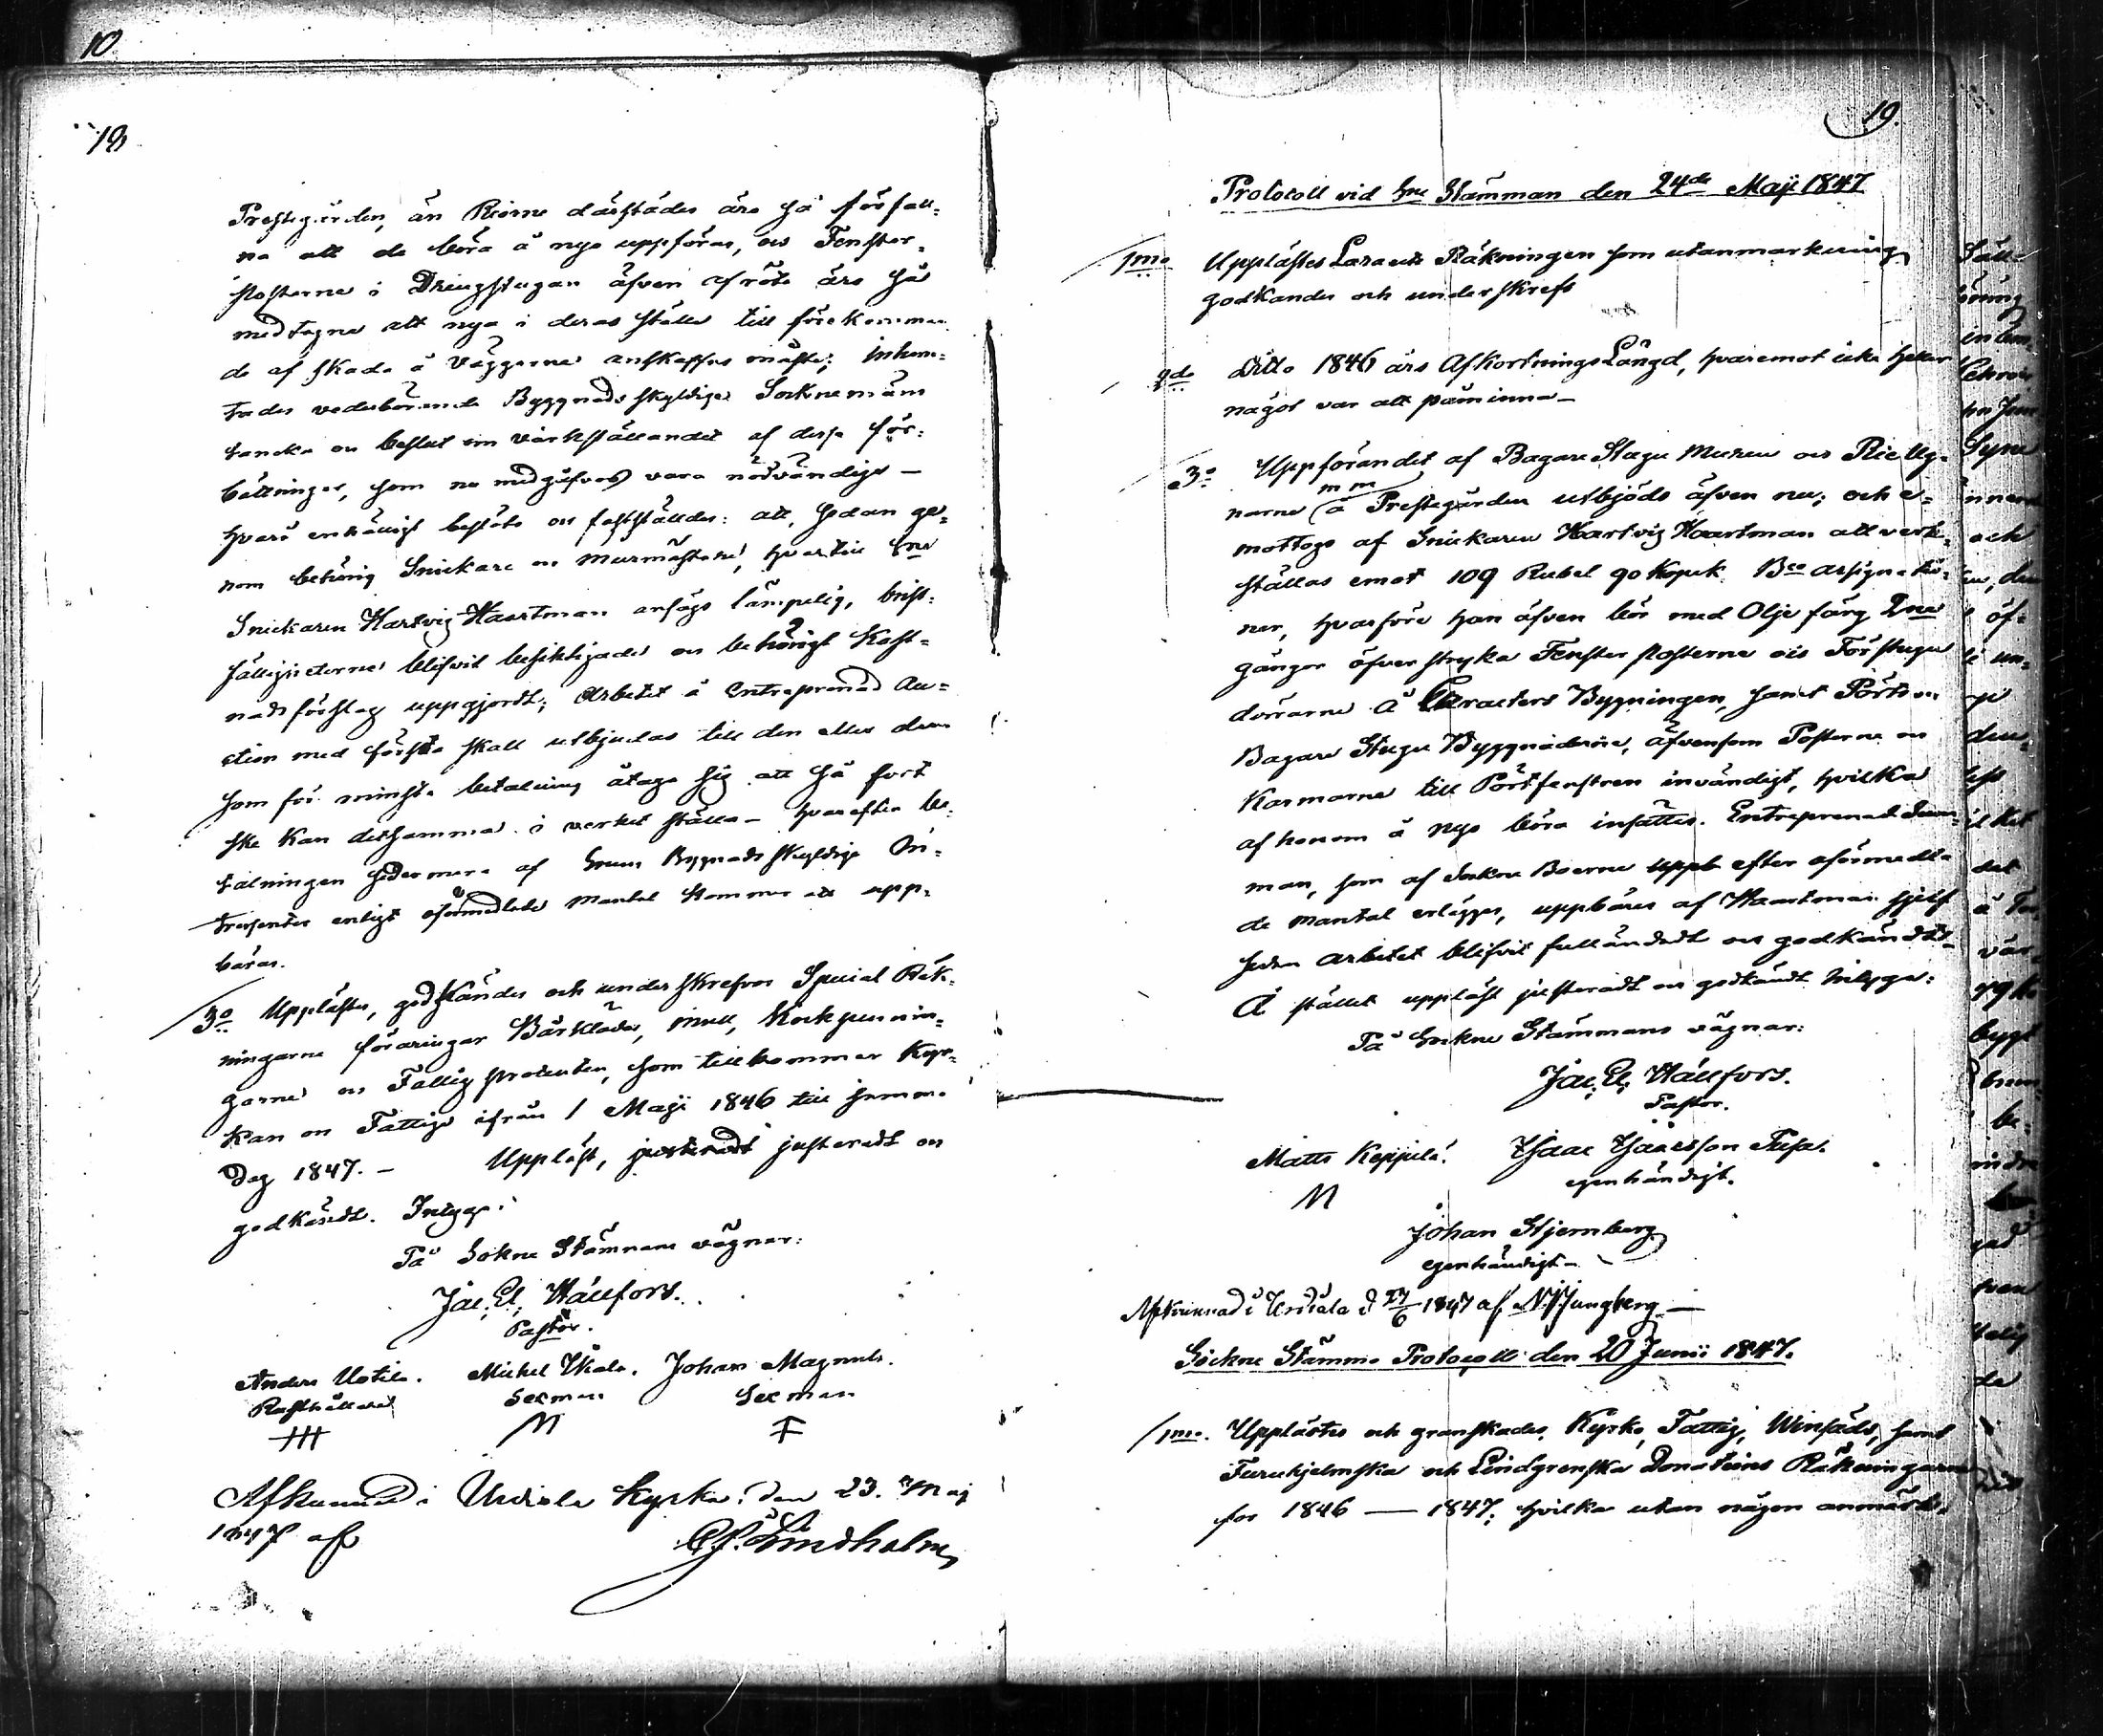 10
18
Prestegården, än Riorne därstädes äro så förfall-
na att de böra å nyo uppföras, och Fenster-
posterne i Drängstugan äfven af röta äro så
medtagne att nya i deras ställe till förekomman-
de af skada å väggarne anskaffas måste; inhem-
tades vederbörande Byggnads skyldiga Socknemäns
tancka och beslut om värkställandet af dessa för-
bättringar, som nu medgåfvos vara nödvändiga –
hvarå enhälligt beslöts och fastställdes: att, sedan ge-
nom behörig Snickare och murmästare, hvartill
Snickaren Hartvig Haartman ansågs lämpelig, brist-
fälligheterne blifvit besiktigade och behörigt Kost-
nads förslag uppgjordt; Arbetet å Entreprenad Au-
ction med första skall utbjudas till den eller dem
som för minsta betalning åtaga sig att så fort
ske kan detsamma i verket ställa – hvarefter be-
talningen sedermera af Byggnads skyldige In-
tressenter enligt oförmedlade mantal kommer att upp-
bäras.
3o Upplästes, godkändes och underskrefvos Special Räk-
ningarne föräringar Bårkläder, Kockpennin-
garne och Fattig procenten, som tillkommer Kyr-
kan och Fattige ifrån 1 Maji 1846 till samma
dag 1847. – Uppläst, justeradt justeradt och
godkändt. Intyga:
På Sokne Stämnans vägnar:
Jac. El. Wállfors.
Pastor.
Anders Uotila. Michel Ikala. Johan Magnuls.
Rusthållare Sexman Sexman
Afkunnad i Urdiala Kyrka; den 23. Maj
1847 af Lindholm
19.
Protocoll vid Sne Stämman den 24de Maji 1847
1mo Upplästes Lazaretts Räkningen som utan markning
godkändes och underskrefs
2do Ditto 1846 års Afkortnings Längd, hvaremot icke heller
något var att påminna –
3o Uppförandet af Bagare Stugu Muren och Rie Ug-
narne m m å Prestegården utbjöds äfven nu; och e-
mottogs af Snickaren Hartvig Haartman att verk-
ställas emot 109 Rubel 90 Kopek Bco assignatio-
ner, hvarföre han äfven bör med Olje färg 2ne
gångor öfverstryka Fensterposterne och Förstugu
dörrarne å Caracters Bygningen, samt Pörts och
Bagare Stugu Byggnaderne, äfvensom Posterne och
Karmarne till Pörtfenstren invändigt, hvilka
af honom å nyo böra insättas. Entreprenad Sum-
man, som af Sokne Boerne uppb efter oförmedla-
de mantal erlägges, uppbäres af Haartman sjelf
sedan arbetet blifvit fulländadt och godkändt.
Å stället uppläst justeradt och godkändt intyga:
På Sockne Stämmans vägnar:
Jac. El. Wállfors.
Pastor.
Matts Keppilä. Isaac Isacsson Tusa.
M egenhändigt.
Johan Stjernberg
egenhändigt –
Afkunnad i Urdiala d 27/6 1847 af Ljungberg –
Sockne Stämmo Protocoll den 20 Junii 1847.
1mo. Upplästes och granskades Kyrko, Fattig, Winsäds, samt
Furuhjelmska och Lindgrenska Donations Räkningarne
för 1846 — 1847; hvilka utan någon anmärk-